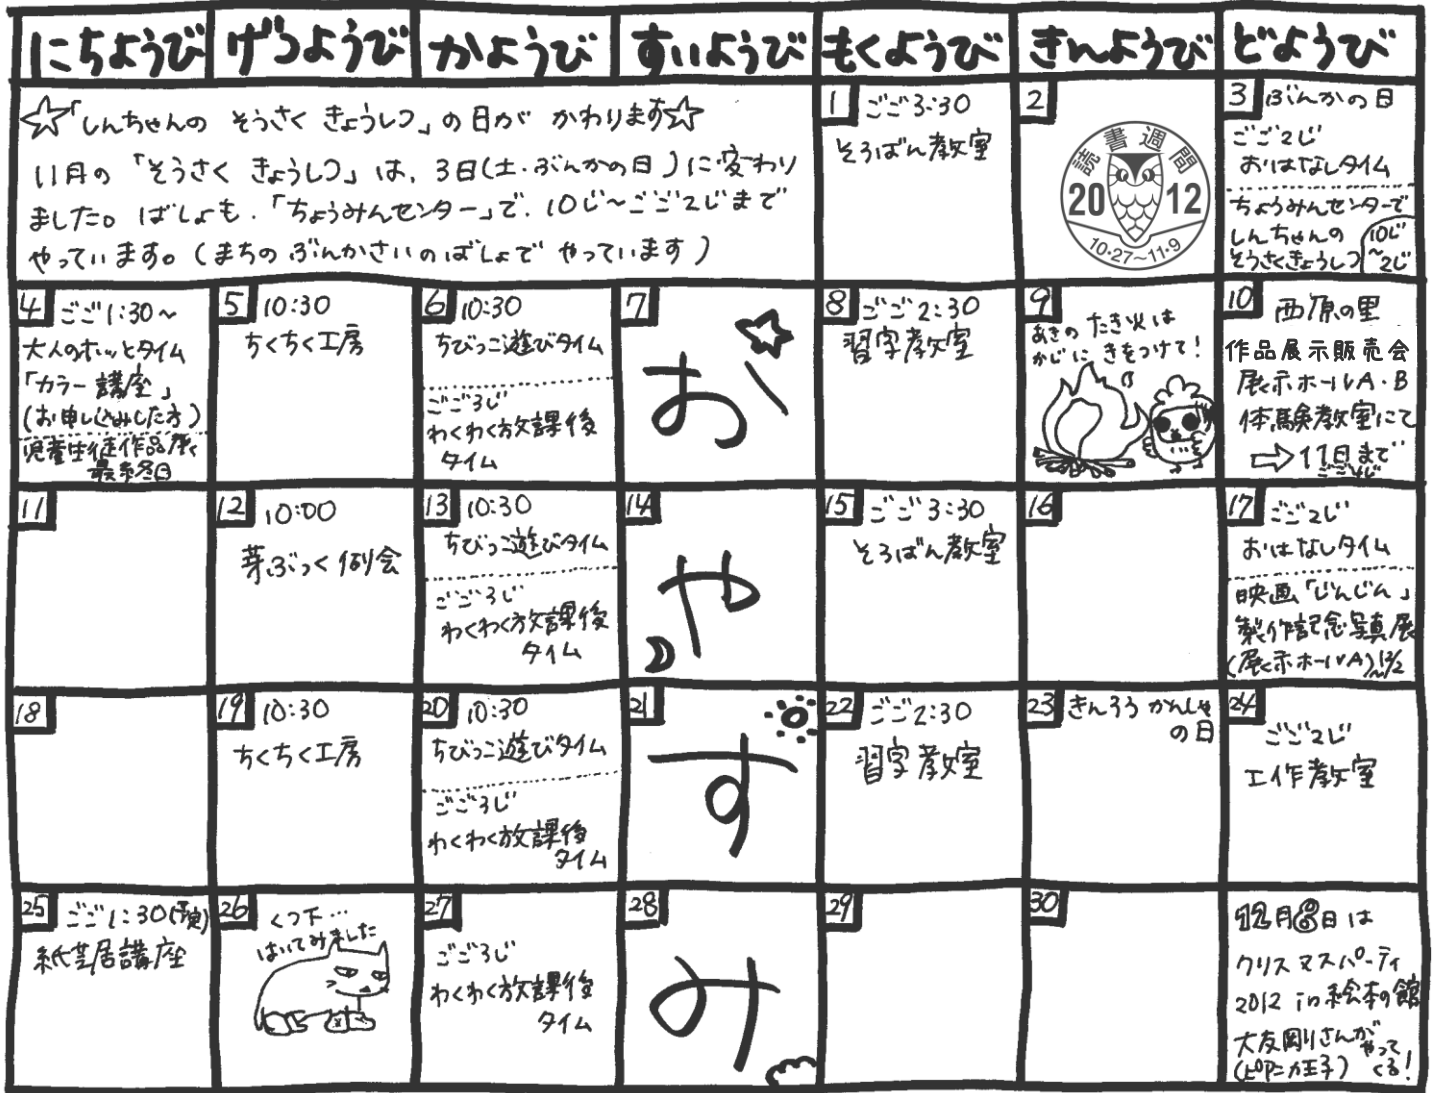 にちようび
げつようび
かようび
すいようび
もくようび
きんようび
どようび
☆「しんちゃんの そうさく きょうしつ」の日が かわります☆
11月の「そうさく きょうしつ」は、3日(土・ぶんかの日)に変わり
ました。ばしょも、「ちょうみんセンター」で、10じ〜ごご2じまで
やっています。(まちの ぶんかさいのばしょで やっています)
1 ごご3:30
そろばん教室
2
読書週間
20 12
10・27〜11・9
3 ぶんかの日
ごご2じ
おはなしタイム
ちょうみんセンターで
しんちゃんの
そうさくきょうしつ
10じ
〜
2じ
4 ごご1:30〜
大人のホッとタイム
「カラー講座」
(お申し込みした方)
児童生徒作品展
最終日
5 10:30
ちくちく工房
6 10:30
ちびっこ遊びタイム
ごご3じ
わくわく放課後
タイム
7
お
8 ごご2:30
習字教室
9
あきの たき火は
かじに きをつけて!
10 西原の里
作品展示販売会
展示ホールA・B
体験教室にて
→11日まで
11
12 10:00
芽ぶっく例会
13 10:30
ちびっこ遊びタイム
ごご3じ
わくわく放課後
タイム
14
や
15 ごご3:30
そろばん教室
16
17
ごご2じ
おはなしタイム
映画「じんじん」
製作記念写真展
(展示ホールA)〜12/2
18
19 10:30
ちくちく工房
20 10:30
ちびっこ遊びタイム
ごご3じ
わくわく放課後
タイム
21
す
22 ごご2:30
習字教室
23 きんろうかんしゃ
の日
24
ごご2じ
工作教室
25 ごご1:30(予定)
紙芝居講座
26 くつ下…
はいてみました
27
ごご3じ
わくわく放課後
タイム
28
み
29
30
12月8日は
クリスマスパーティ
2012 in 絵本の館
大友剛さんが
(ピアニカ王子)
やって
くる!